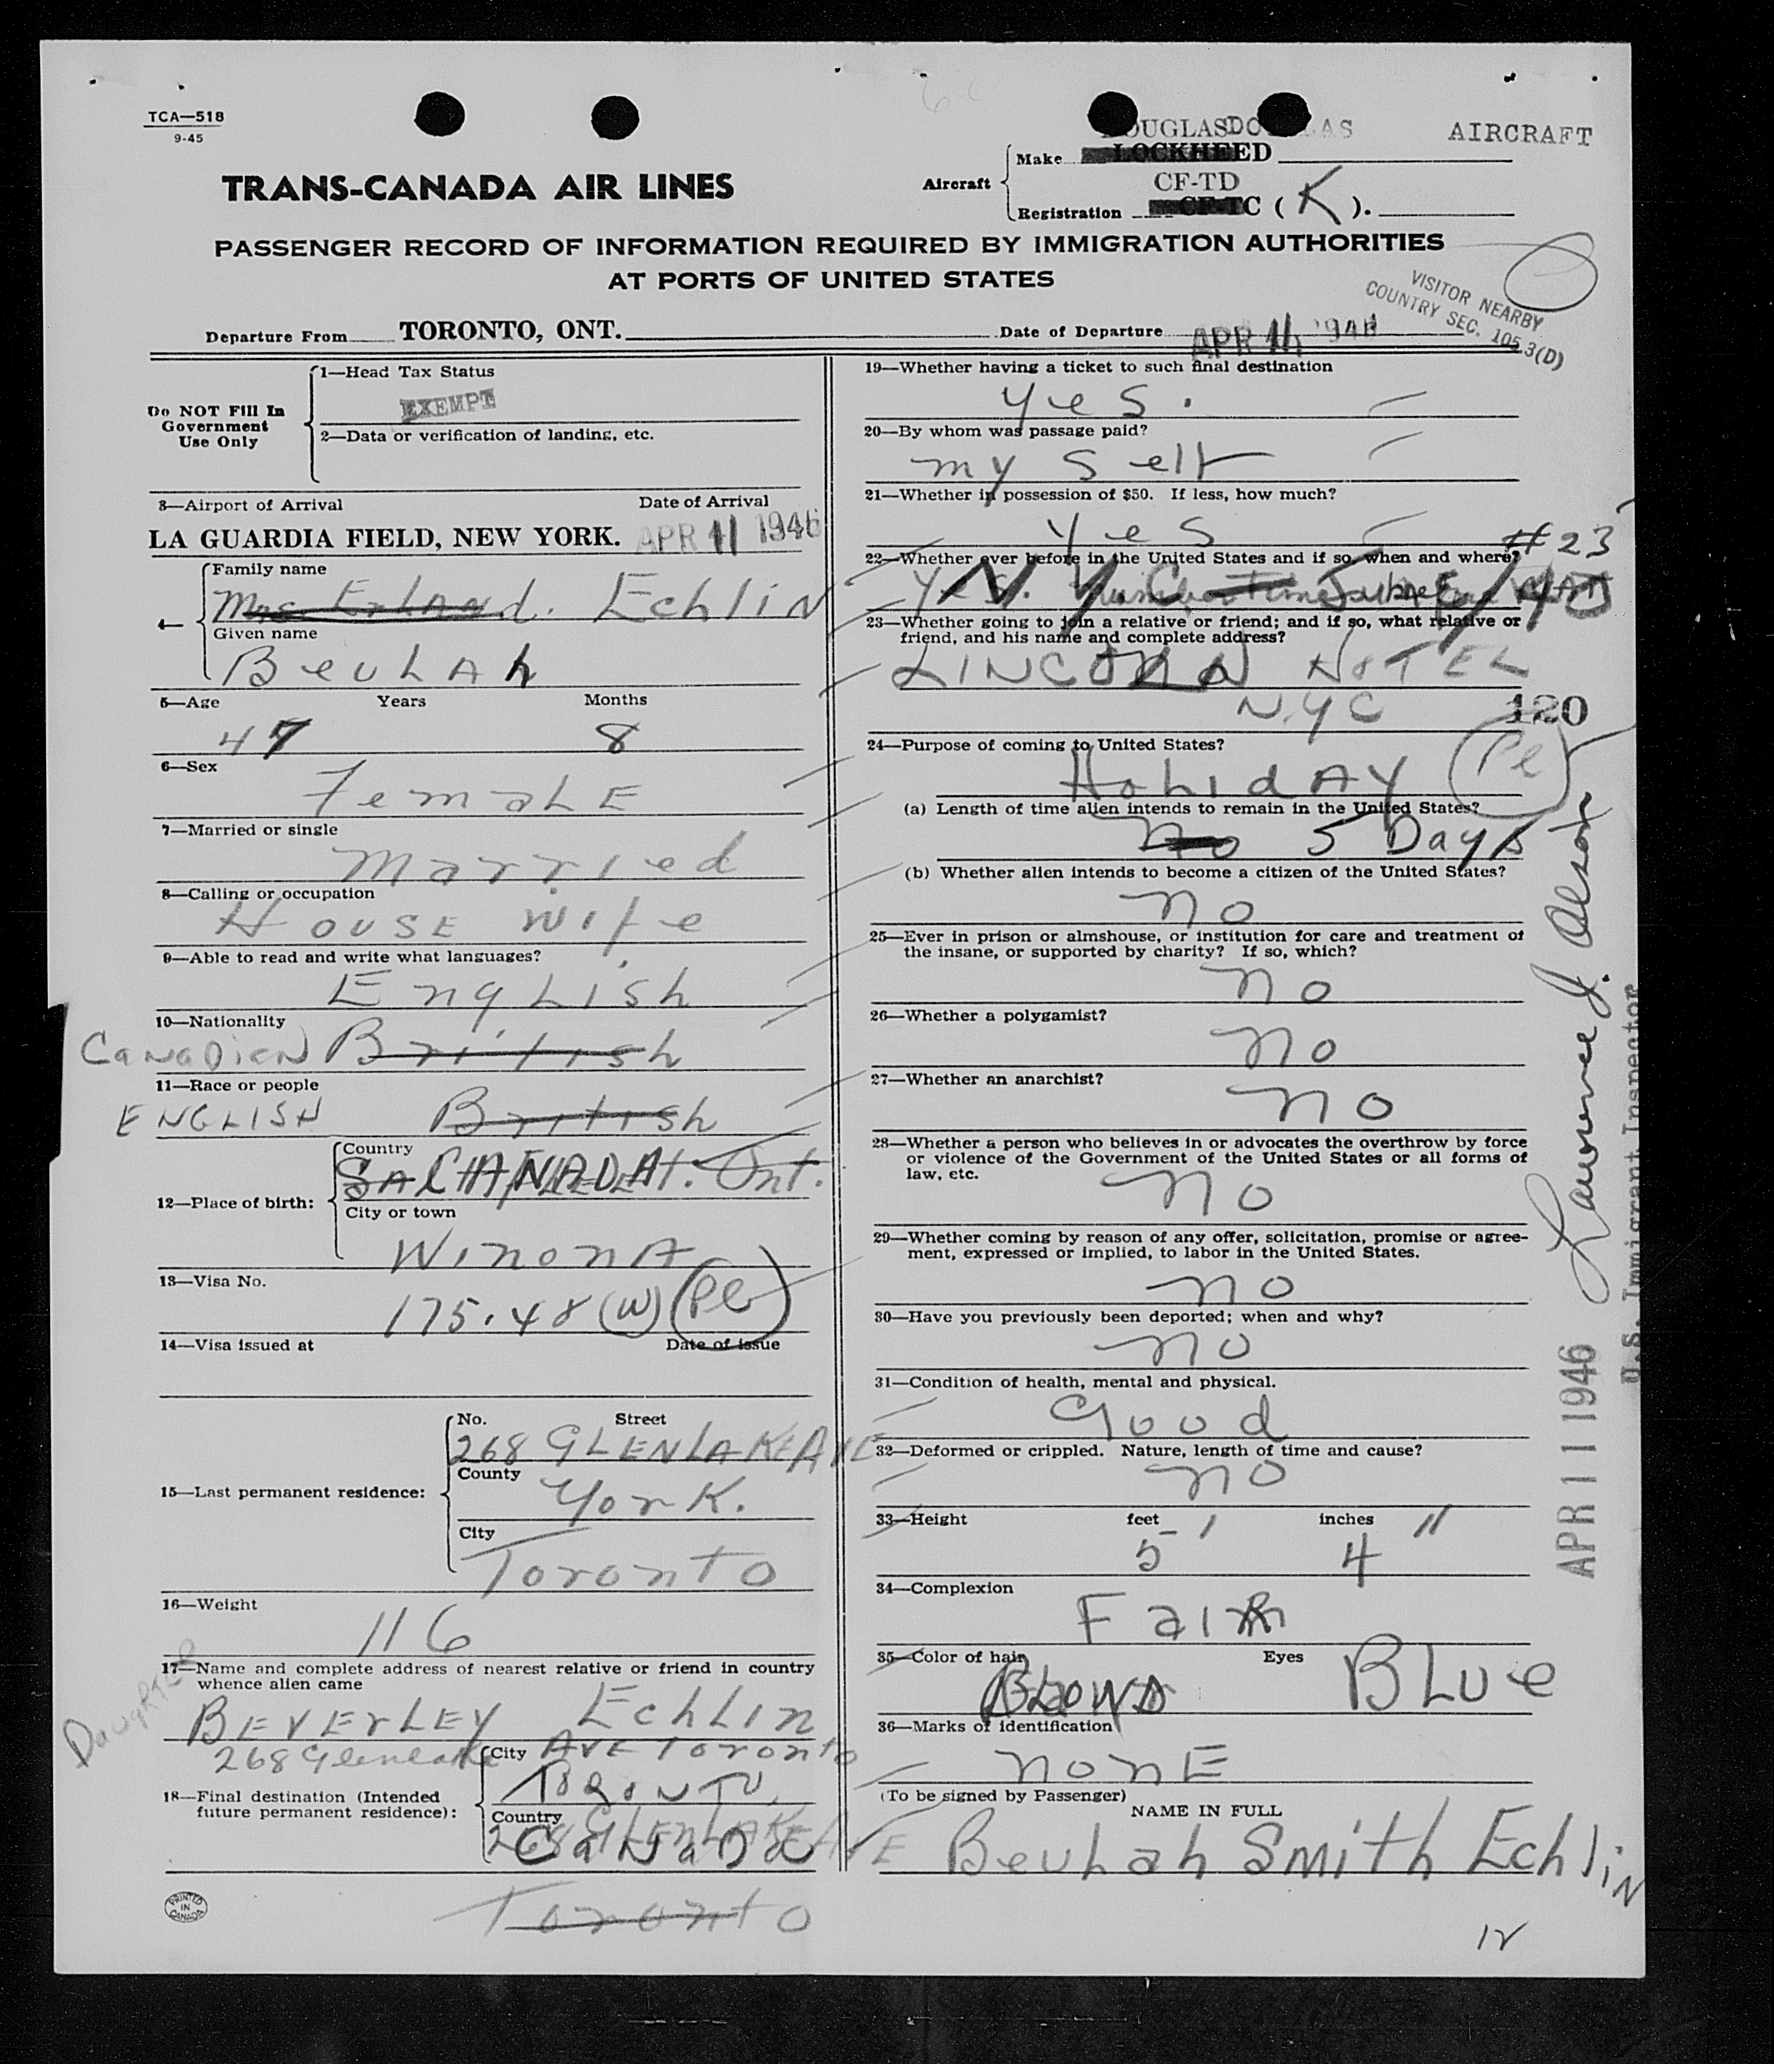 TCA—518
9-45
DOUGLAS DOUGLAS AIRCRAFT
TRANS-CANADA AIR LINES
Aircraft
Make LOCKHEED
CF-TD
Registration CF-TC ( K ).
PASSENGER RECORD OF INFORMATION REQUIRED BY IMMIGRATION AUTHORITIES
AT PORTS OF UNITED STATES
VISITOR NEARBY
COUNTRY SEC. 105.3(D)
Departure From TORONTO, ONT. Date of Departure APR 11 1946
Do NOT Fill In
Government
Use Only
1—Head Tax Status
EXEMPT
2—Data or verification of landing, etc.
3—Airport of Arrival Date of Arrival
LA GUARDIA FIELD, NEW YORK. APR 11 1946
4—
Family name
Mrs. Erland. Echlin
Given name
Beulah
5—Age Years Months
47 8
6—Sex
Female
7—Married or single
Married
8—Calling or occupation
House wife
9—Able to read and write what languages?
English
10—Nationality
Canadien British
11—Race or people
ENGLISH British
12—Place of birth:
Country
CANADA Ont.
City or town
Winona
13—Visa No.
175.48 (W) (Pl)
14—Visa issued at Date of issue
15—Last permanent residence:
No. Street
268 GLENLAKE AVE
County
York.
City
Toronto
16—Weight
116
17—Name and complete address of nearest relative or friend in country
whence alien came
Daughter
BEVERLEY Echlin
268 Glenlake AVE Toronto
18—Final destination (Intended
future permanent residence):
City
TORONTO
Country
268 GLENLAKE AVE
Canada
Toronto
PRINTED
IN
CANADA
19—Whether having a ticket to such final destination
yes.
20—By whom was passage paid?
my self
21—Whether in possession of $50. If less, how much?
yes
#23
22—Whether ever before in the United States and if so, when and where?
Yes. N.Y.C.
23—Whether going to join a relative or friend; and if so, what relative or
friend, and his name and complete address?
LINCOLN HOTEL
N.Y C
120
24—Purpose of coming to United States?
Holiday (Pl)
(a) Length of time alien intends to remain in the United States?
no 5 Days
(b) Whether alien intends to become a citizen of the United States?
no
25—Ever in prison or almshouse, or institution for care and treatment of
the insane, or supported by charity? If so, which?
no
26—Whether a polygamist?
no
27—Whether an anarchist?
no
28—Whether a person who believes in or advocates the overthrow by force
or violence of the Government of the United States or all forms of
law, etc.
no
29—Whether coming by reason of any offer, solicitation, promise or agree-
ment, expressed or implied, to labor in the United States.
no
30—Have you previously been deported; when and why?
no
31—Condition of health, mental and physical.
Good
32—Deformed or crippled. Nature, length of time and cause?
no
33—Height feet inches
5' 4"
34—Complexion
Fair
35—Color of hair Eyes
Blond Blue
36—Marks of identification
none
(To be signed by Passenger)
NAME IN FULL
Beulah Smith Echlin
Lawrence J. Olson
U.S. Immigrant Inspector
APR 11 1946